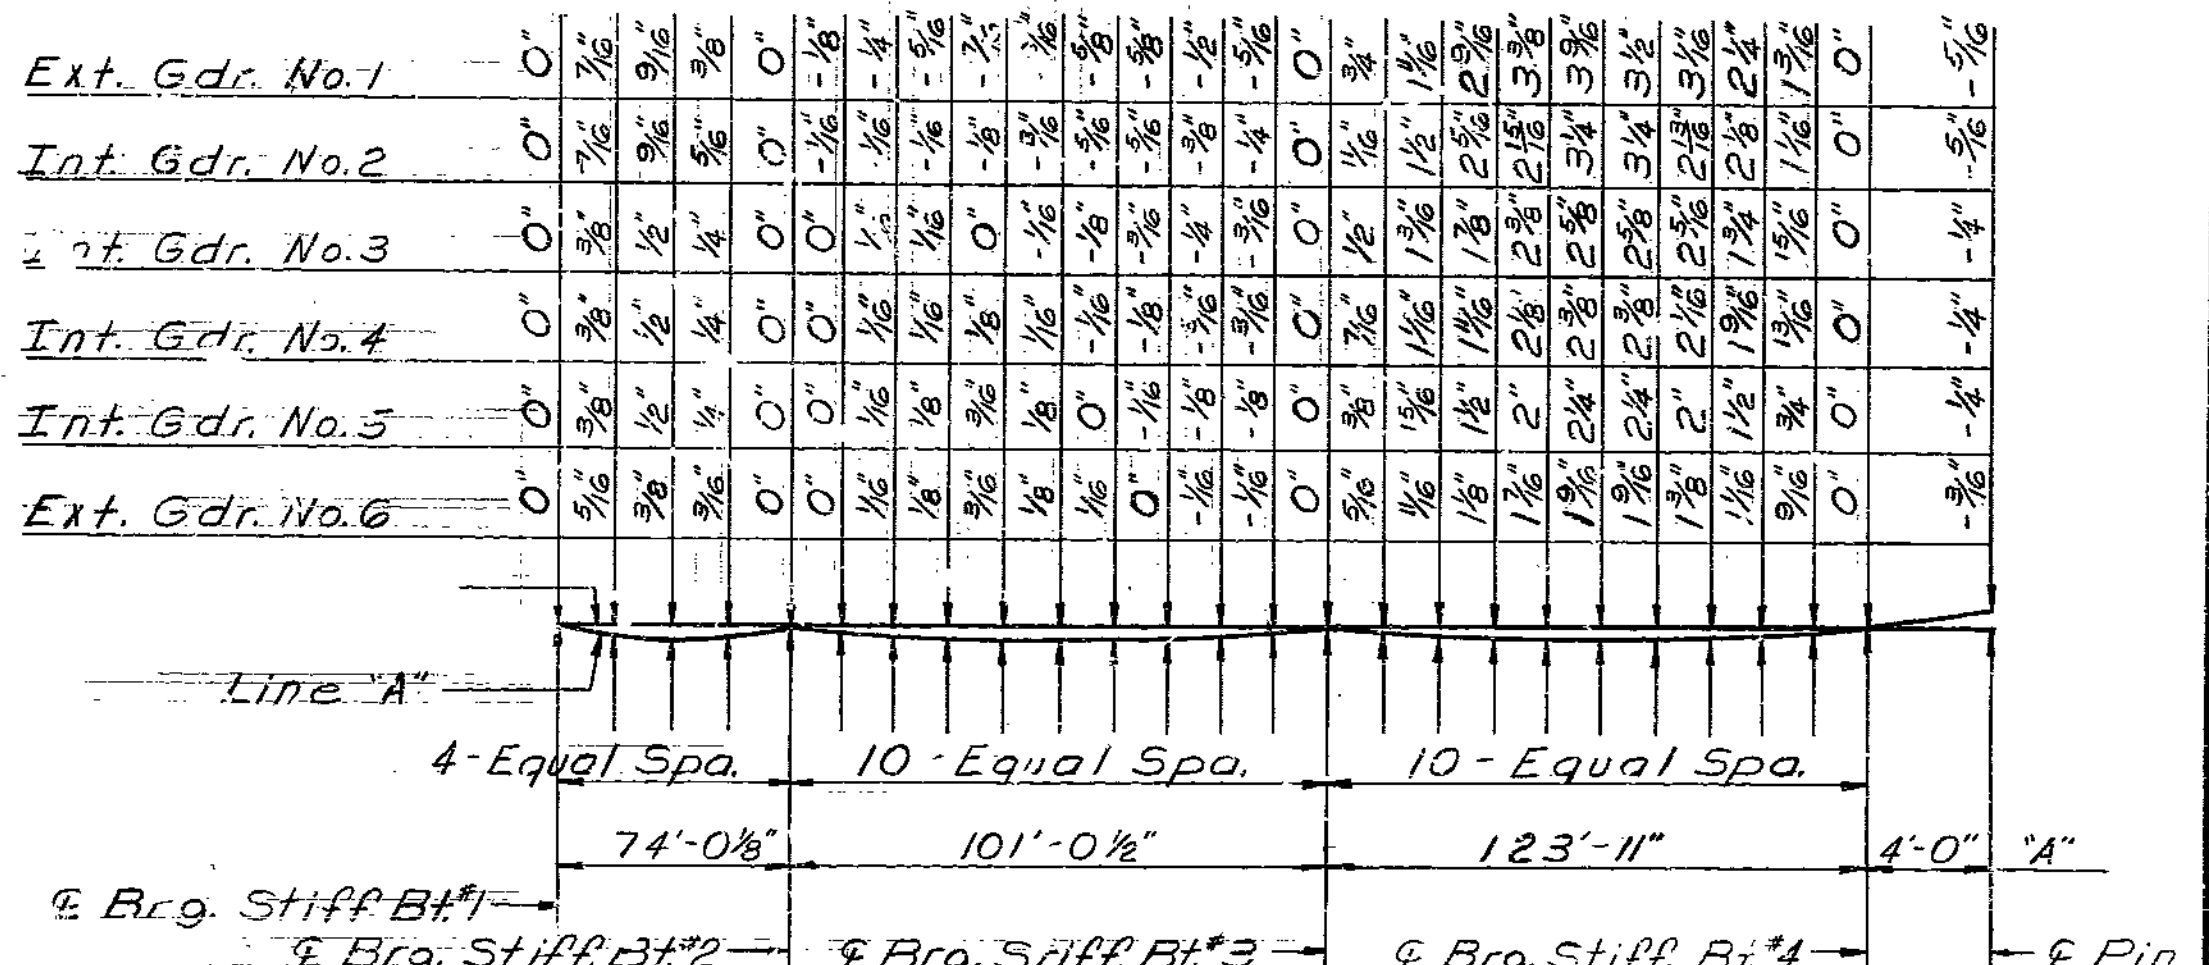 Ext. Gdr. No.1 0" 7/16" 9/16" 3/8" 0" -1/8" -1/4" -5/16" -5/8" -5/8" -1/2" -5/16" 0" 3/4" 1 11/16" 2 9/16" 3 3/8" 3 9/16" 3 1/2" 3 1/16" 2 1/4" 1 3/16" 0" -5/16"
Int. Gdr. No.2 0" 7/16" 9/16" 5/16" 0" -1/16" -1/16" -1/16" -1/8" -3/16" -5/16" -5/16" -3/8" -1/4" 0" 11/16" 1 1/2" 2 5/16" 2 15/16" 3 1/4" 3 1/4" 2 13/16" 2 1/8" 1 1/16" 0" -5/16"
Gdr. No.3 0" 3/8" 1/2" 1/4" 0" 0" 1/16" 0" -1/16" -1/8" -3/16" -1/4" -3/16" 0" 1/2" 1 3/16" 1 7/8" 2 3/8" 2 5/8" 2 5/8" 2 5/16" 1 3/4" 15/16" 0" -1/4"
Int. Gdr. No.4 0" 3/8" 1/2" 1/4" 0" 0" 1/16" 1/16" 1/8" 1/16" -1/16" -1/8" -3/16" 0" 7/16" 1 1/16" 1 11/16" 2 1/8" 2 3/8" 2 3/8" 2 1/16" 1 9/16" 13/16" 0" -1/4"
Int. Gdr. No.5 0" 3/8" 1/2" 1/4" 0" 0" 1/16" 1/8" 3/16" 1/8" 0" -1/16" -1/8" -1/8" 0" 3/8" 15/16" 1 1/2" 2" 2 1/4" 2 1/4" 2" 1 1/2" 3/4" 0" -1/4"
Ext. Gdr. No.6 0" 5/16" 3/8" 3/16" 0" 0" 1/16" 1/8" 3/16" 1/8" 1/16" 0" -1/16" -1/16" 0" 5/16" 11/16" 1 1/8" 1 7/16" 1 9/16" 1 9/16" 1 3/8" 1 1/16" 9/16" 0" -3/16"
Line "A"
4-Equal Spa. 10-Equal Spa. 10-Equal Spa.
74'-0 1/8" 101'-0 1/2" 123'-11" 4'-0" "A"
℄ Brg. Stiff Bt.#1
℄ Brg. Stiff. Bt.#2 ℄ Brg. Stiff Bt.#3 ℄ Brg. Stiff. Bt.#4 ℄ Pin